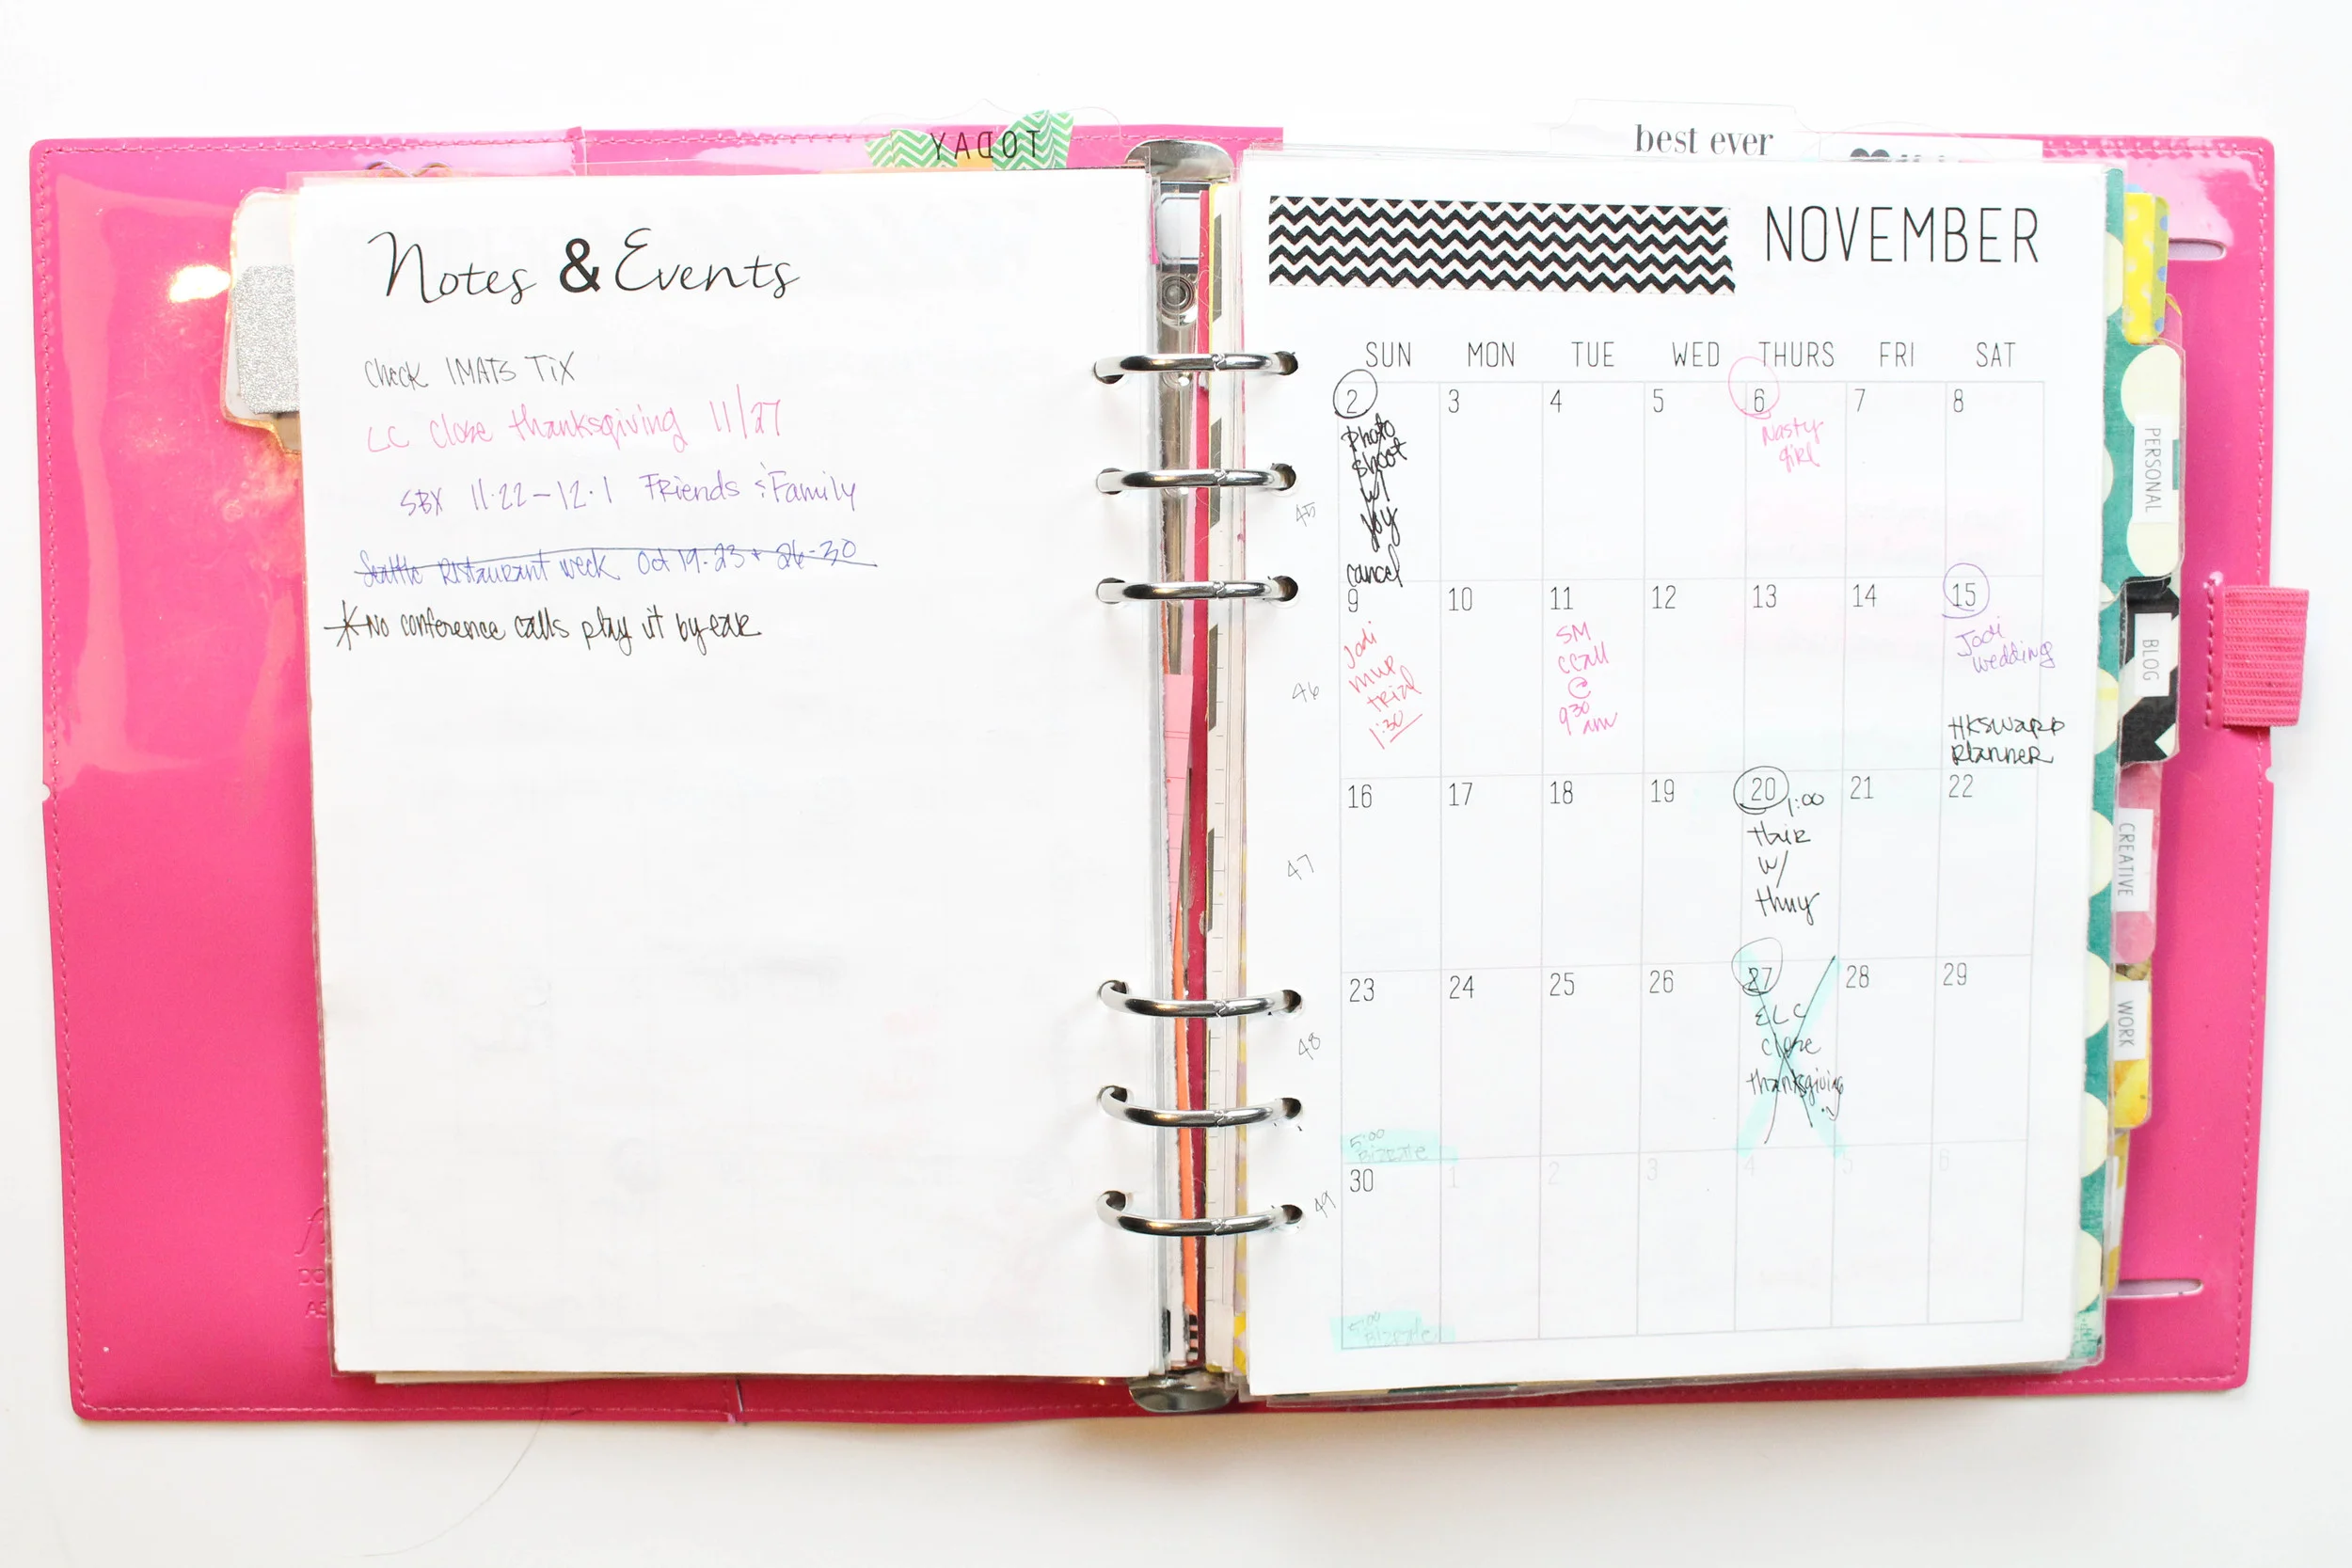 TODAY
best ever
Notes & Events
Check IMATS TIX
LC Close thanksgiving 11/27
SBX 11.22-12.1 Friends & Family
Seattle Restaurant week Oct 19-23 + 26-30
*No conference calls play it by ear
NOVEMBER
SUN MON TUE WED THURS FRI SAT
2 3 4 5 6 7 8
Photo
shoot
w/
Joy
cancel
Nasty
girl
45
9 10 11 12 13 14 15
Jodi
mup
trial
1:30
SM
ccall
@
9:30
am
Jodi
wedding
HKSwapp
Planner
46
16 17 18 19 20 21 22
1:00
w/
thuy
47
23 24 25 26 27 28 29
ELC
close
thanksgiving
5:00
48
30 1 2 3 4 5 6
5:00
49
PERSONAL
BLOG
CREATIVE
WORK